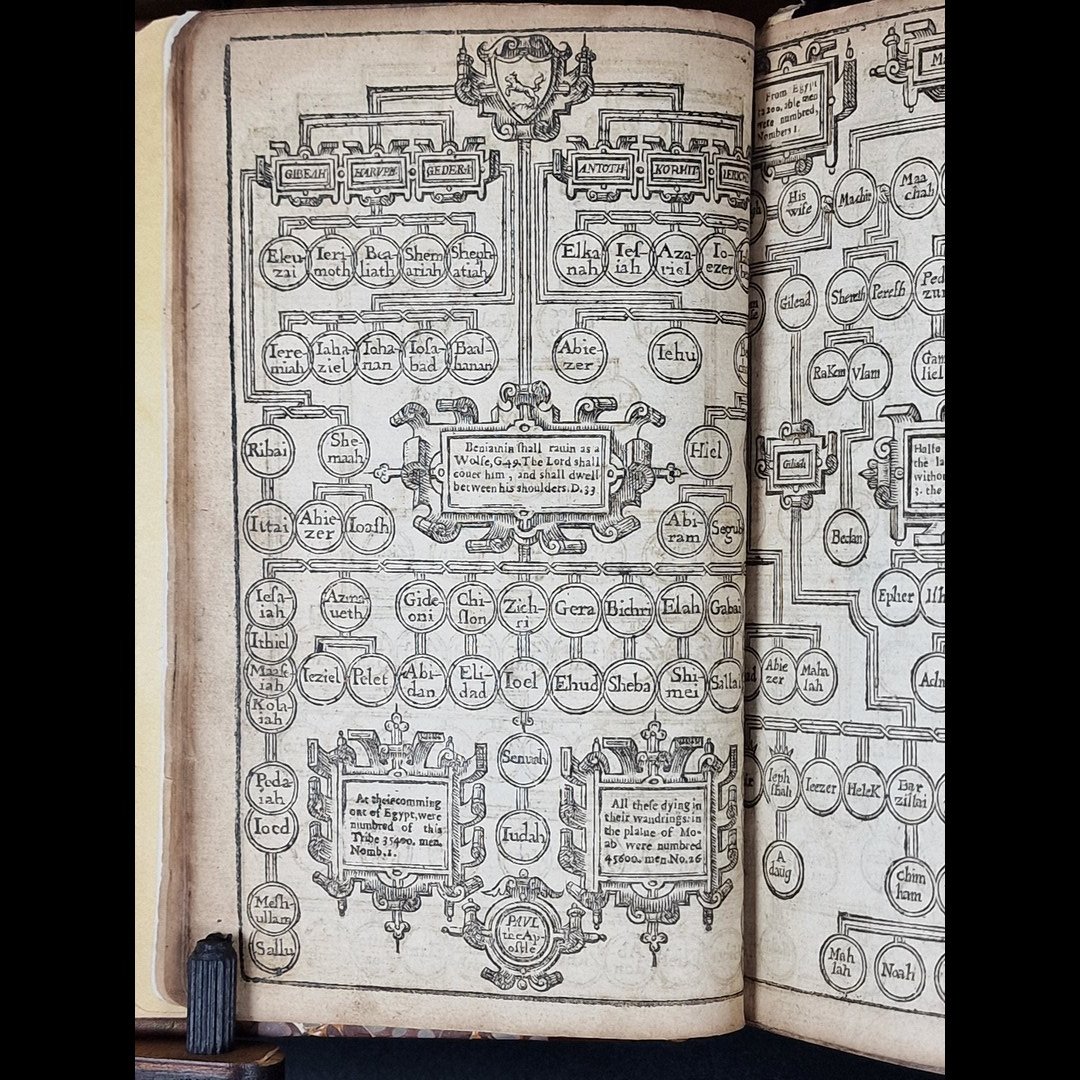 GIBEAH HARVPH GEDERA
ANTOTH KORHIT
Eleu-
zai
Ieri-
moth
Bea-
liath
Shem
ariah
Sheph
atiah
Elka
nah
Ieſ-
iah
Aza-
riel
Io-
ezer
Iere-
miah
Iaha-
ziel
Ioha-
nan
Ioſa-
bad
Baal-
hanan
Abie-
zer
Iehu
Ribai
She-
maah
Beniamin ſhall rauin as a
Wolfe, G.49. The Lord shall
couer him , and shall dwell
between his shoulders. D. 33
Hiel
Ittai
Ahie-
zer
Ioaſh
Abi-
ram
Segub
Ieſa-
iah
Azma
ueth
Gide-
oni
Chi-
ſlon
Zich-
ri
Gera
Bichri
Elah
Gabai
Ithiel
Maaſe
iah
Ieziel
Pelet
Abi-
dan
Eli-
dad
Ioel
Ehud
Sheba
Shi-
mei
Sallai
Kola-
iah
Senuah
Peda-
iah
At their comming
out of Egypt, were
numbred of this
Tribe 35400. men.
Nomb. 1.
All theſe dying in
their wandrings: in
the plaine of Mo-
ab were numbred
45600. men. No. 26
Ioed
Iudah
Meſh-
ullam
PAVL
the Ap-
oſtle
Sallu
From Egypt
32200. able men
were numbred,
Nombers 1.
His
wife
Machir
Maa
chah
Gilead
Shereſh
Pereſh
Ped
zur
Rakem
Vlam
Gam
liel
Gilead
Halfe
the la
witho
3. the
Bedan
Epher
Iſh
Abie
zer
Maha
lah
Adn
Ieph
thah
Ieezer
Helek
Bar
zillai
A
daug
chim
ham
Mah
lah
Noah